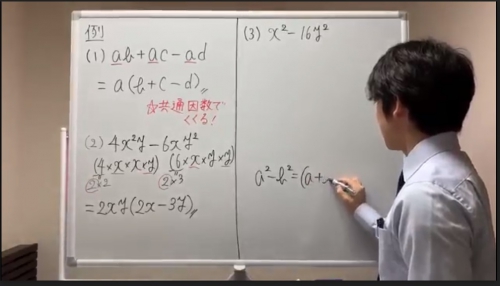 例
(1) ab+ac-ad
= a(b+c-d)〃
☆共通因数で
くくる!
(2) 4x²y-6xy²
(4×x×x×y) (6×x×y×y)
②×2 ②×3
=2xy(2x-3y)〃
(3) x²-16y²
a²-b²=(a+